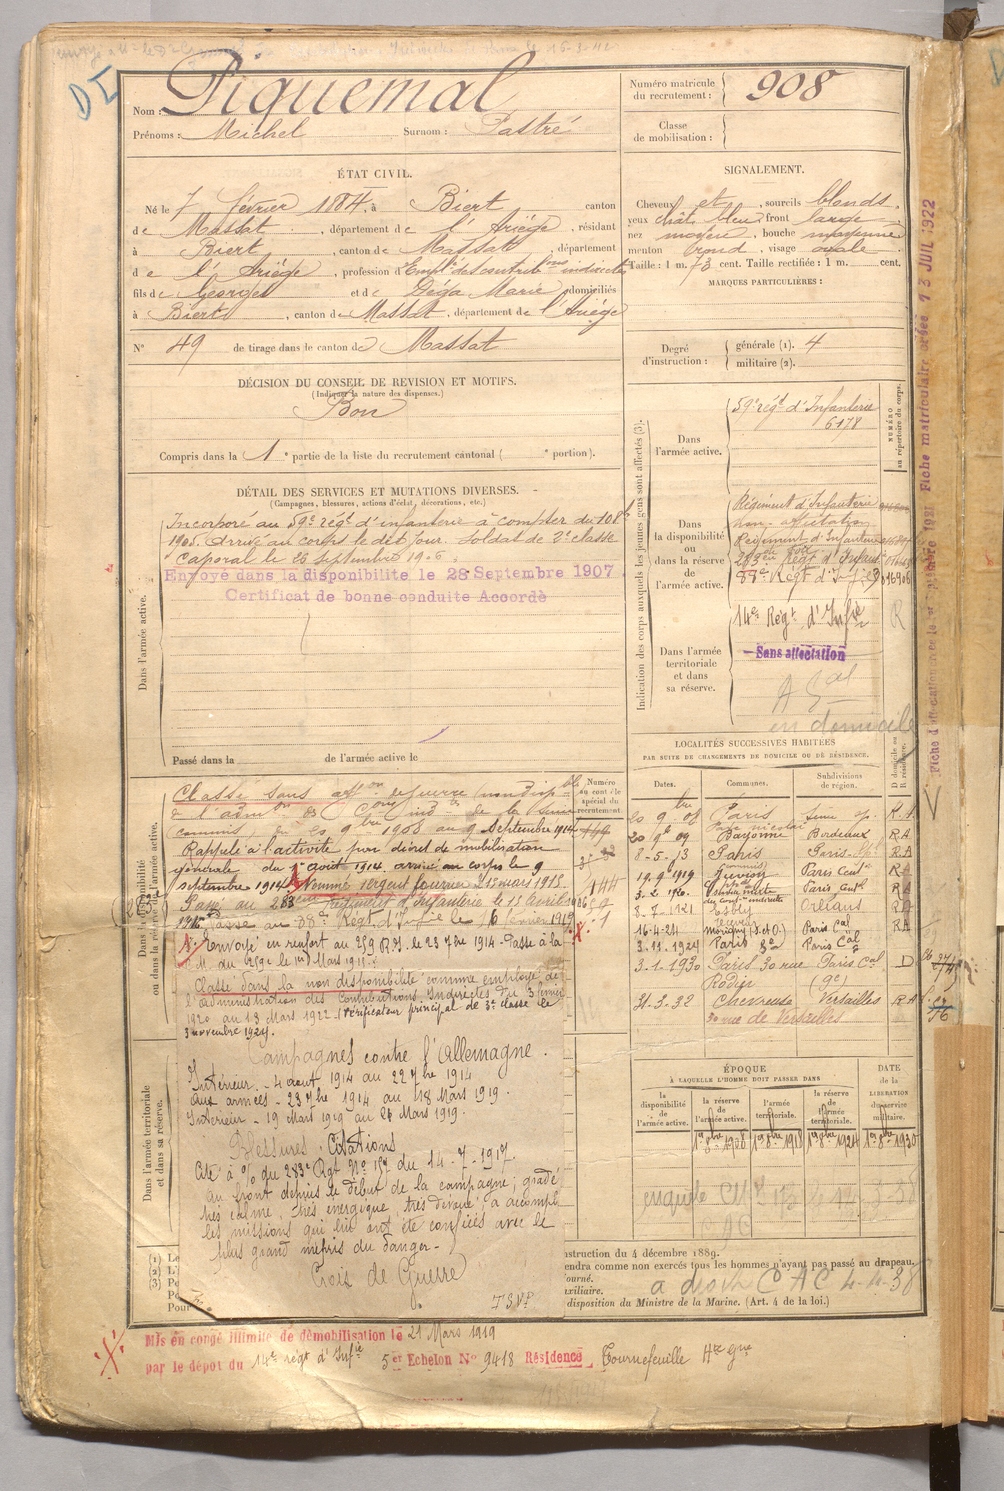 DI
Nom : Piquemal
Prénoms : Michel Surnom : Pastré
Numéro matricule du recrutement : 908
Classe de mobilisation :
ÉTAT CIVIL.
Né le 7 février 1884, à Biert canton
de Massat, département de l'Ariège, résidant
à Biert, canton de Massat, département
de l'Ariège, profession d'Empl. des contrib.ons indirectes
fils de Georges et de Déga Marie domiciliés
à Biert, canton de Massat, département de l'Ariège
N° 49 de tirage dans le canton de Massat
SIGNALEMENT.
Cheveux et, sourcils blonds,
yeux chât. bleu, front large
nez moyen, bouche moyenne
menton rond, visage ovale
Taille : 1 m. 73 cent. Taille rectifiée : 1 m. cent.
MARQUES PARTICULIÈRES :
Degré d'instruction : générale (1). 4
militaire (2).
DÉCISION DU CONSEIL DE REVISION ET MOTIFS.
(Indiquer la nature des dispenses.)
Bon
Compris dans la 1e partie de la liste du recrutement cantonal ( e portion).
DÉTAIL DES SERVICES ET MUTATIONS DIVERSES.
(Campagnes, blessures, actions d'éclat, décorations, etc.)
Dans l'armée active.
Incorporé au 59e régt d'infanterie à compter du 10 8bre
1905. Arrivé au corps le dit jour. Soldat de 2e classe
Caporal le 25 Septembre 1906.
Envoyé dans la disponibilité le 28 Septembre 1907.
Certificat de bonne conduite Accordé
Passé dans la de l'armée active le
Indication des corps auxquels les jeunes gens sont affectés (3).
NUMÉRO au répertoire du corps.
Dans l'armée active.
59e régt d'Infanterie
6178
Dans la disponibilité ou dans la réserve de l'armée active.
Régiment d'Infanterie
non-affectation
Régiment d'Infanterie
283e Régt d'Infanterie
88e Régt d'Infie
Dans l'armée territoriale et dans sa réserve.
14e Régt d'Infie
R
Sans affectation
en domicile
Fiche matriculaire 13 JUIL 1922
LOCALITÉS SUCCESSIVES HABITÉES
PAR SUITE DE CHANGEMENTS DE DOMICILE OU DE RÉSIDENCE.
Dates. Communes. Subdivisions de région. D domicile ou R résidence.
20 9bre 08 Paris R.A
20 9bre 09 Bayonne Bordeaux RA
8-5-13 Paris Paris RA
19.9.1919 Paris Cent. RA
3.2.1920 Paris Cent. RA
8-7-1921 Esbly Orléans RA
16-4-24 Morigny (S et O.) Paris Cal RA
3.11.1924 Paris Paris Cal
3-1-1930 Paris 30 rue Rodin Paris Cal D
21-3-32 Chevreuse Versailles RA
30 rue de Versailles
Numéro au contrôle spécial du recrutement
Dans la disponibilité ou dans la réserve de l'armée active.
Classé sans affon de guerre
commis, du 20 9bre 1908 au 9 Septembre 1914
Rappelé à l'activité par décret de mobilisation
générale du 1er août 1914 arrivé au corps le 9
septembre 1914 Nommé sergent fourrier le 12 mars 1915
Passé au 283ème Régiment d'Infanterie le 15 Avril
Passé au 88e Régt d'Infie le 16 février 1919
Envoyé en renfort au 259 R.I. le 23 7bre 1914 - Passé à la
C.M. du 259e le 1er Mars 1915.
Classé dans la non disponibilité comme employé de
l'administration des Contributions Indirectes du 3
1920 au 13 Mars 1922 (Vérificateur principal de 3e classe le
3 novembre 1924.
Campagnes contre l'Allemagne.
Intérieur - 4 août 1914 au 22 7bre 1914
aux armées - 23 7bre 1914 au 18 Mars 1919.
Intérieur - 19 Mars 1919 au 26 Mars 1919.
Blessures Citations
Cité à l'o/ du 283e Régt No 157 du 14-7-1917.
au front depuis le début de la campagne ; gradé
très calme, très énergique, très dévoué ; a accompli
les missions qui lui ont été confiées avec le
plus grand mépris du danger -
Croix de Guerre
T.S.V.P
Dans l'armée territoriale et dans sa réserve.
ÉPOQUE
À LAQUELLE L'HOMME DOIT PASSER DANS
la disponibilité de l'armée active. la réserve de l'armée active. l'armée territoriale. la réserve de l'armée territoriale.
DATE de la LIBÉRATION du service militaire.
1er 8bre 1908 1er 8bre 1918 1er 8bre 1924 1er 8bre 1930
(1)
(2)
(3)
struction du 4 décembre 1889.
endra comme non exercés tous les hommes n'ayant pas passé au drapeau,
ourné.
xiliaire.
disposition du Ministre de la Marine. (Art. 4 de la loi.)
CAC 4-4-38
Mis en congé illimité de démobilisation le 21 Mars 1919
par le dépôt du 14e régt d'Infie 5e Echelon N° 9418 Résidence, Tournefeuille Hte Gne